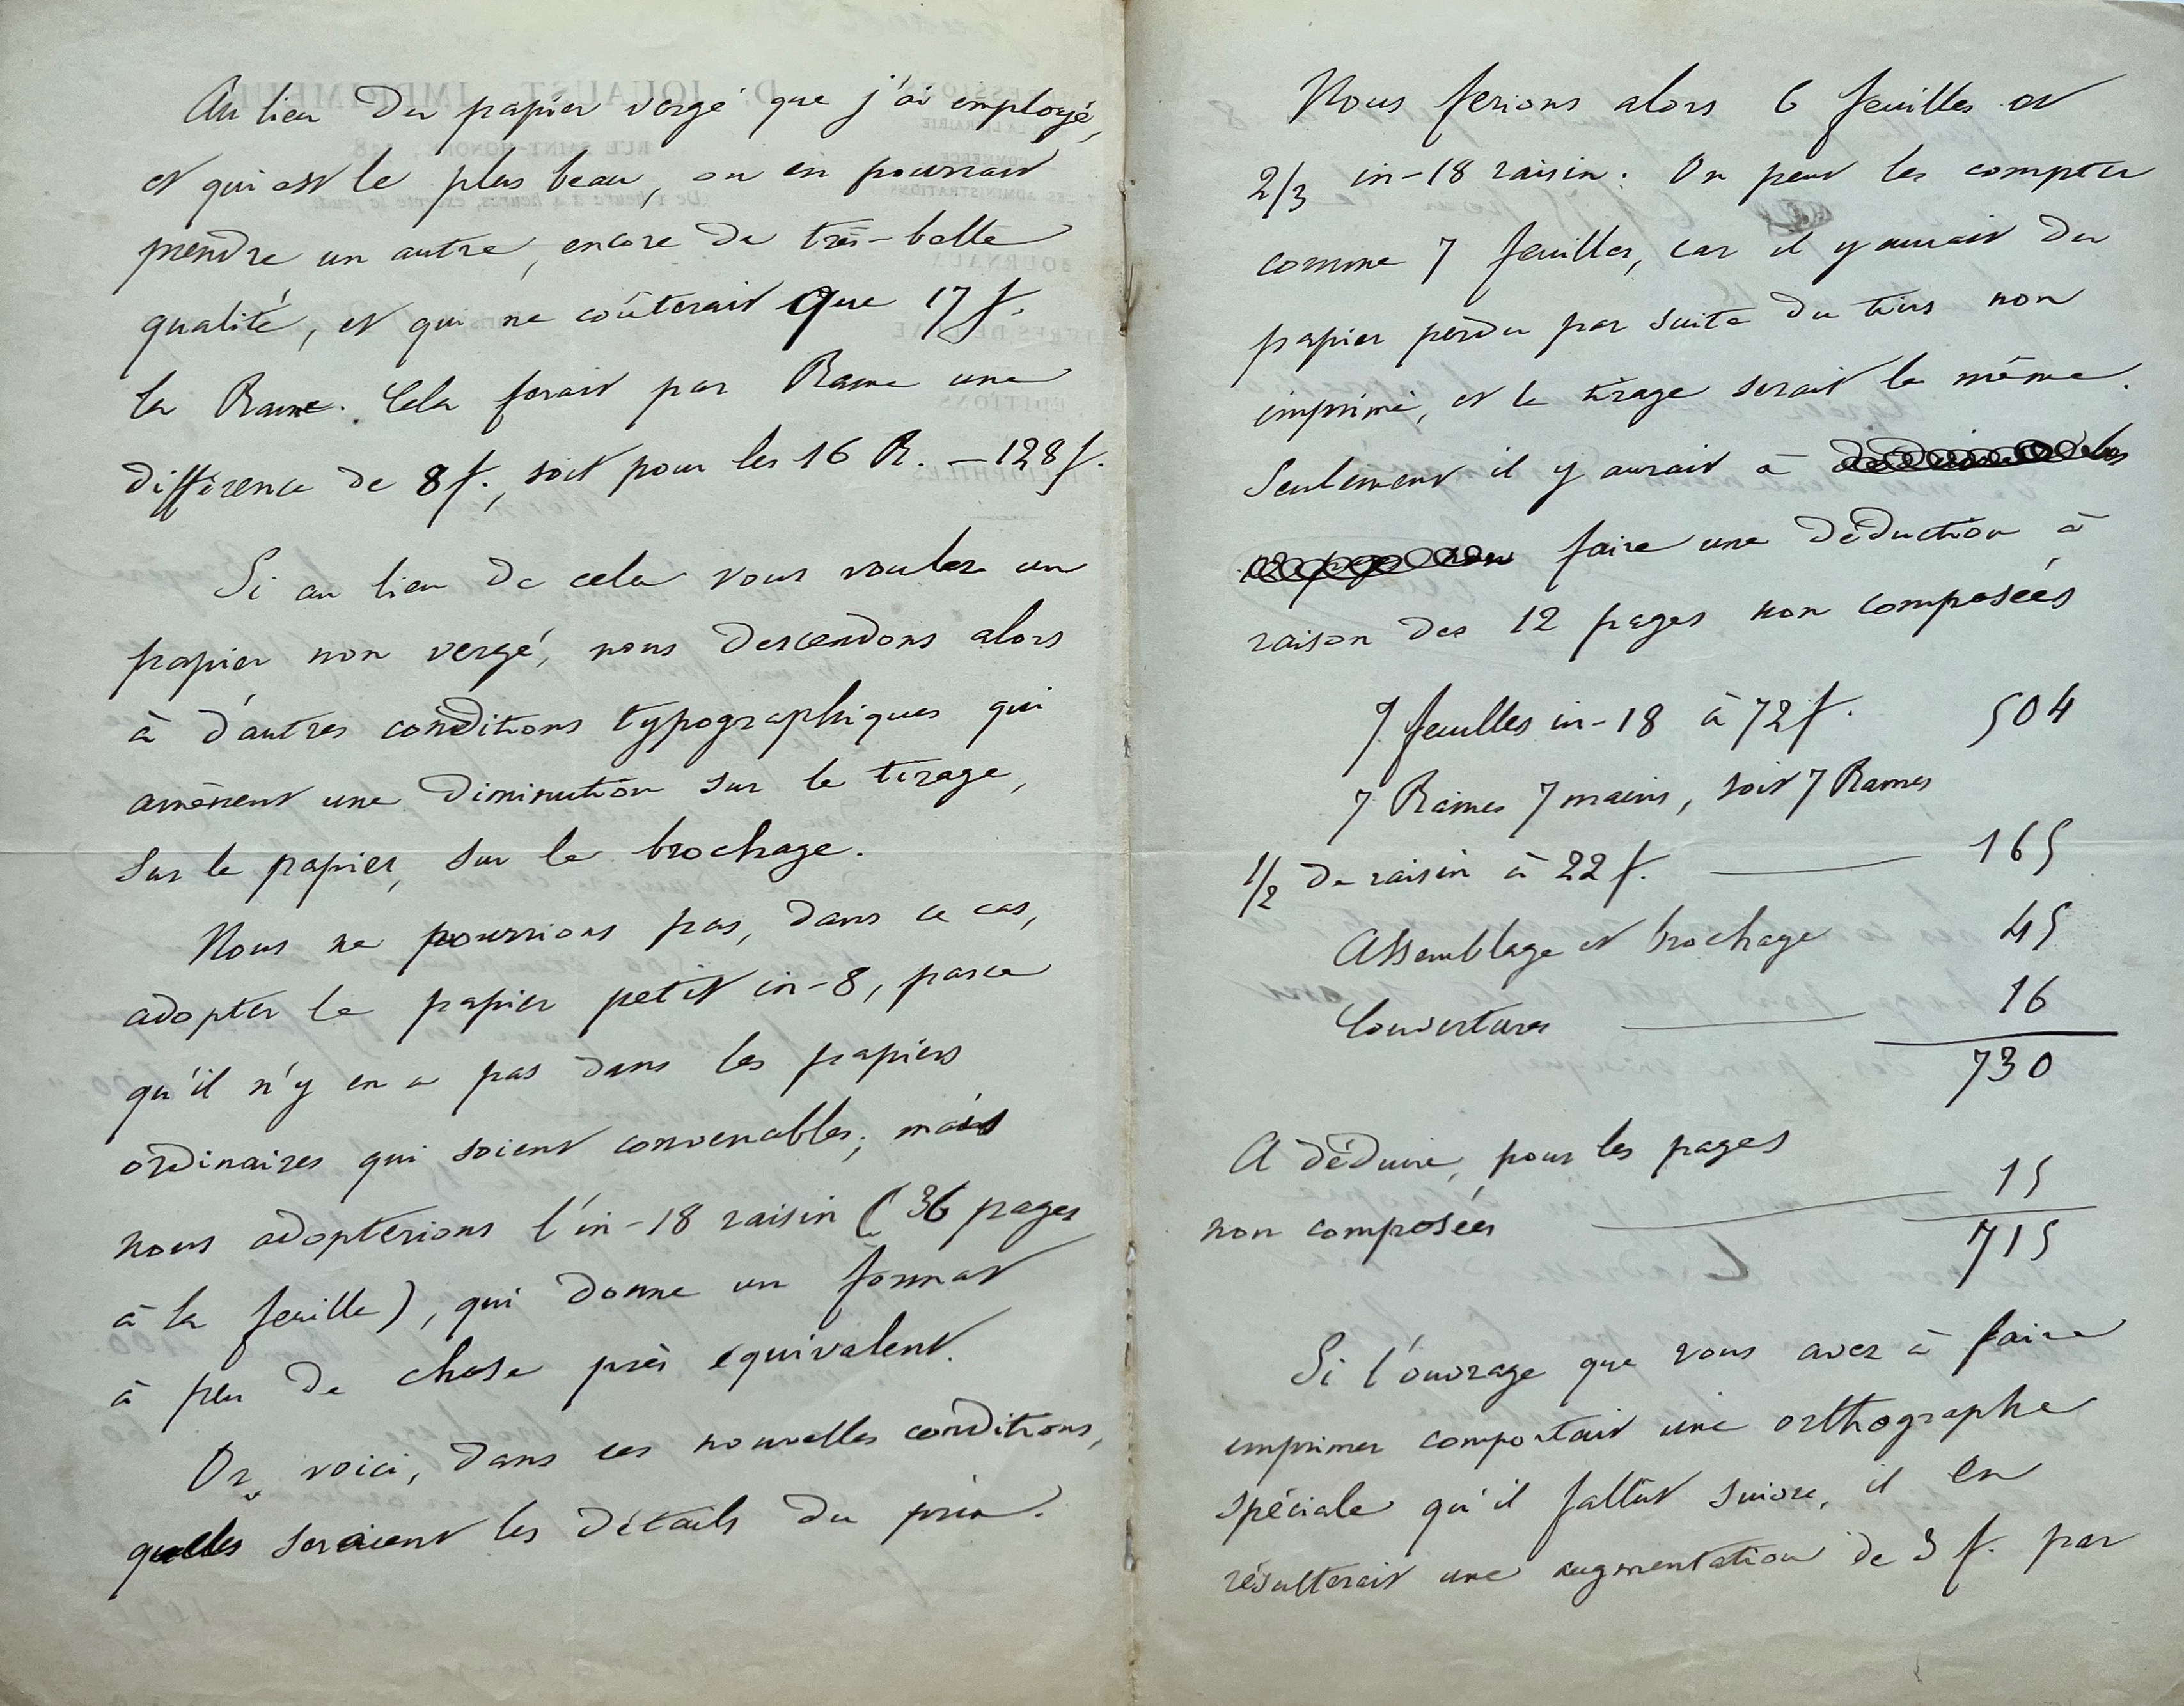 Au lieu du papier vergé que j'ai employé,
et qui est le plus beau, on en pourrait
prendre un autre, encore de très-belle
qualité, et qui ne coûterait que 17 f.
la Rame. Cela ferait par Rame une
différence de 8 f., soit pour les 16 R. — 128 f.
Si au lieu de cela vous voulez un
papier non vergé, nous descendons alors
à d'autres conditions typographiques qui
amènent une diminution sur le tirage,
sur le papier, sur le brochage.
Nous ne pourrions pas, dans ce cas,
adopter le papier petit in-8, parce
qu'il n'y en a pas dans les papiers
ordinaires qui soient convenables; mais
nous adopterions l'in-18 raisin (36 pages
à la feuille), qui donne un format
à peu de chose près équivalent.
Or, voici, dans ces nouvelles conditions,
quelles seraient les détails du prix.
Nous ferions alors 6 feuilles et
2/3 in-18 raisin. On peut les compter
comme 7 feuilles, car il y aurait du
papier perdu par suite du tiers non
imprimé, et le tirage serait le même.
Seulement il y aurait à
faire une déduction à
raison des 12 pages non composées
7 feuilles in-18 à 72 f. 504
7 Rames 7 mains, soit 7 Rames
1/2 de raisin à 22 f. — 165
Assemblage et brochage 45
Couvertures — 16
730
A déduire, pour les pages
non composées — 15
715
Si l'ouvrage que vous avez à faire
imprimer comportait une orthographe
spéciale qu'il fallût suivre, il en
résulterait une augmentation de 3 f. par